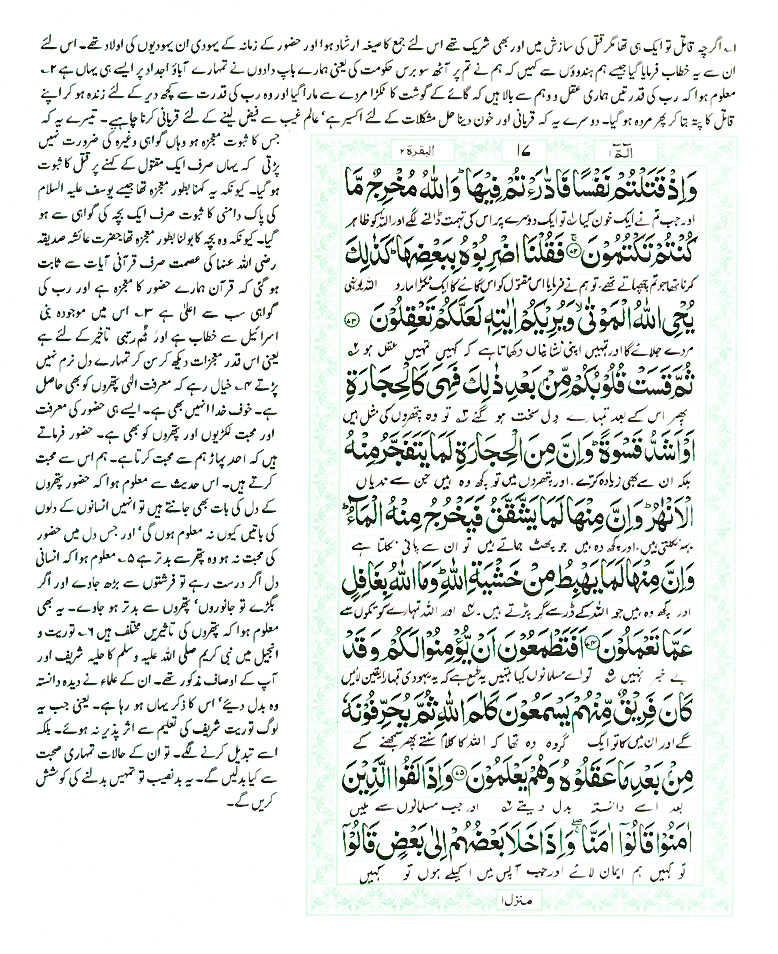 ۱؂ اگرچہ قاتل تو ایک ہی تھا مگر قتل کی سازش میں اور بھی شریک تھے اس لئے جمع کا صیغہ ارشاد ہوا اور حضور کے زمانہ کے یہودی ان یہودیوں کی اولاد تھے۔ اس لئے
ان سے یہ خطاب فرمایا گیا جیسے ہم ہندوؤں سے کہیں کہ ہم نے تم پر آٹھ سو برس حکومت کی یعنی ہمارے باپ دادوں نے تمہارے آباؤ اجداد پر ایسے ہی یہاں ہے ۲؂
معلوم ہوا کہ رب کی قدرتیں ہماری عقل و وہم سے بالا ہیں کہ گائے کے گوشت کا ٹکڑا مردے سے مارا گیا اور وہ رب کی قدرت سے کچھ دیر کے لئے زندہ ہو کر اپنے
قاتل کا پتہ بتا کر پھر مردہ ہو گیا۔ دوسرے یہ کہ قربانی اور خون دینا حل مشکلات کے لئے اکسیر ہے ٗ عالم غیب سے فیض لینے کے لئے قربانی کرنا چاہیے۔ تیسرے یہ کہ
جس کا ثبوت معجزہ ہو وہاں گواہی وغیرہ کی ضرورت نہیں
پڑتی کہ یہاں صرف ایک مقتول کے کہنے پر قتل کا ثبوت
ہو گیا۔ کیونکہ یہ کہنا بطور معجزہ تھا جیسے یوسف علیہ السلام
کی پاک دامنی کا ثبوت صرف ایک بچہ کی گواہی سے ہو
گیا۔ کیونکہ وہ بچہ کا بولنا بطور معجزہ تھا حضرت عائشہ صدیقہ
رضی اللہ عنہا کی عصمت صرف قرآنی آیات سے ثابت
ہو گئی کہ قرآن ہمارے حضور کا معجزہ ہے اور رب کی
گواہی سب سے اعلیٰ ہے ۳؂ اس میں موجودہ بنی
اسرائیل سے خطاب ہے اور ثُمَّ رتبی تاخیر کے لئے ہے
یعنی اس قدر معجزات دیکھ کر سن کر تمہارے دل نرم نہیں
پڑتے ۴؂ خیال رہے کہ معرفت الٰہی پتھروں کو بھی حاصل
ہے۔ خوف خدا انہیں بھی ہے۔ ایسے ہی حضور کی معرفت
اور محبت لکڑیوں اور پتھروں کو بھی ہے۔ حضور فرماتے
ہیں کہ احد پہاڑ ہم سے محبت کرتا ہے۔ ہم اس سے محبت
کرتے ہیں۔ اس حدیث سے معلوم ہوا کہ حضور پتھروں
کے دل کی بات بھی جانتے ہیں تو انہیں انسانوں کے دلوں
کی باتیں کیوں نہ معلوم ہوں گی ٗ اور جس دل میں حضور
کی محبت نہ ہو وہ پتھر سے بدتر ہے ۵؂ معلوم ہوا کہ انسانی
دل اگر درست رہے تو فرشتوں سے بڑھ جاوے اور اگر
بگڑے تو جانوروں ٗ پتھروں سے بدتر ہو جاوے۔ یہ بھی
معلوم ہوا کہ پتھروں کی تاثیریں مختلف ہیں ۶؂ توریت و
انجیل میں نبی کریم صلی اللہ علیہ وسلم کا حلیہ شریف اور
آپ کے اوصاف مذکور تھے۔ ان کے علماء نے دیدہ دانستہ
وہ بدل دیئے ٗ اس کا ذکر یہاں ہو رہا ہے۔ یعنی جب یہ
لوگ توریت شریف کی تعلیم سے اثر پذیر نہ ہوئے۔ بلکہ
اسے تبدیل کرنے لگے۔ تو ان کے حالات تمہاری صحبت
سے کیا بدلیں گے۔ یہ بدنصیب تو تمہیں بدلنے کی کوشش
کریں گے۔
الٓمّٓ ۱ ۱۷ البقرۃ ۲
وَاِذْ قَتَلْتُمْ نَفْسًا فَادّٰرَءْتُمْ فِيْهَا ؕ وَاللّٰهُ مُخْرِجٌ مَّا
اور جب تم نے ایک خون کیا ۱؂ تو ایک دوسرے پر اس کی تہمت ڈالنے لگے اور اللہ کو ظاہر
كُنْتُمْ تَكْتُمُوْنَ ۚ۝۷۲ فَقُلْنَا اضْرِبُوْهُ بِبَعْضِهَا ؕ كَذٰلِكَ
کرنا تھا جو تم چھپاتے تھے۔ تو ہم نے فرمایا اس مقتول کو اس گائے کا ایک ٹکڑا مارو اللہ یونہی
يُحْيِ اللّٰهُ الْمَوْتٰى ۙ وَيُرِيْكُمْ اٰيٰتِهٖ لَعَلَّكُمْ تَعْقِلُوْنَ ۝۷۳
مردے جلائے گا اور تمہیں اپنی نشانیاں دکھاتا ہے کہ کہیں تمہیں عقل ہو ۲؂
ثُمَّ قَسَتْ قُلُوْبُكُمْ مِّنْ بَعْدِ ذٰلِكَ فَهِيَ كَالْحِجَارَةِ
پھر اس کے بعد تمہارے دل سخت ہو گئے ۳؂ تو وہ پتھروں کی مثل ہیں
اَوْ اَشَدُّ قَسْوَةً ؕ وَاِنَّ مِنَ الْحِجَارَةِ لَمَا يَتَفَجَّرُ مِنْهُ
بلکہ ان سے بھی زیادہ کرّے۔ اور پتھروں میں تو کچھ وہ ہیں جن سے ندیاں
الْاَنْهٰرُ ؕ وَاِنَّ مِنْهَا لَمَا يَشَّقَّقُ فَيَخْرُجُ مِنْهُ الْمَآءُ ؕ
بہہ نکلتی ہیں۔ اور کچھ وہ ہیں جو پھٹ جاتے ہیں تو ان سے پانی نکلتا ہے
وَاِنَّ مِنْهَا لَمَا يَهْبِطُ مِنْ خَشْيَةِ اللّٰهِ ؕ وَمَا اللّٰهُ بِغَافِلٍ
اور کچھ وہ ہیں جو اللہ کے ڈر سے گر پڑتے ہیں۔ ۴؂ اور اللہ تمہارے کوتکوں سے
عَمَّا تَعْمَلُوْنَ ۝۷۴ اَفَتَطْمَعُوْنَ اَنْ يُّؤْمِنُوْا لَكُمْ وَقَدْ
بے خبر نہیں ۵؂ تو اے مسلمانو کیا تمہیں یہ طمع ہے کہ یہ یہودی تمہارا یقین لائیں
كَانَ فَرِيْقٌ مِّنْهُمْ يَسْمَعُوْنَ كَلٰمَ اللّٰهِ ثُمَّ يُحَرِّفُوْنَهٗ
گے اور ان میں کا تو ایک گروہ وہ تھا کہ اللہ کا کلام سنتے پھر سمجھنے کے
مِنْ بَعْدِ مَا عَقَلُوْهُ وَهُمْ يَعْلَمُوْنَ ۝۷۵ وَاِذَا لَقُوا الَّذِيْنَ
بعد اسے دانستہ بدل دیتے ۶؂ اور جب مسلمانوں سے ملیں
اٰمَنُوْا قَالُوْۤا اٰمَنَّا ۖۚ وَاِذَا خَلَا بَعْضُهُمْ اِلٰى بَعْضٍ قَالُوْۤا
تو کہیں ہم ایمان لائے اور جب آپس میں اکیلے ہوں تو کہیں
منزل ۱